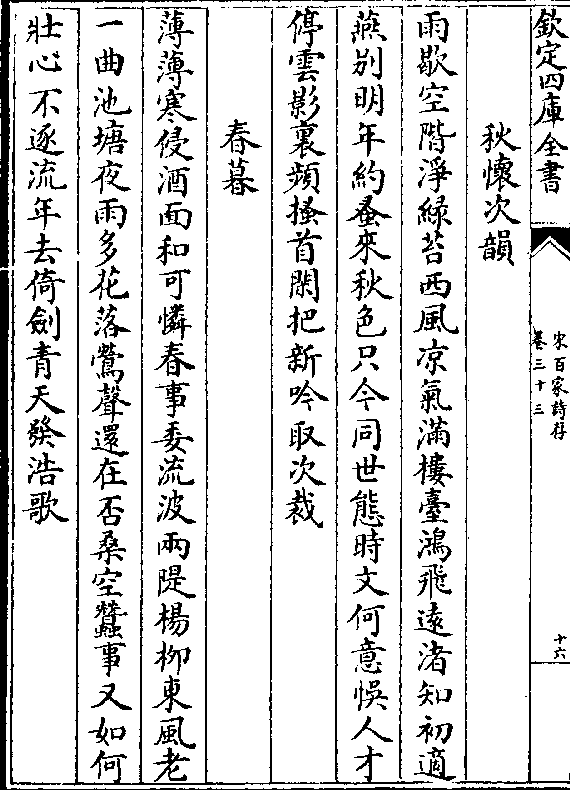 欽定四庫全書
宋百家詩存
卷三十三
十六
秋懷次韻
雨歇空階淨緑苔西風凉氣滿樓臺鴻飛遠渚知初適
燕别明年約蚤來秋色只今同世態時文何意悞人才
停雲影裏頻搔首閑把新吟取次裁
春暮
薄薄寒侵酒面和可憐春事委流波兩隄楊柳東風老
一曲池塘夜雨多花落鶯聲還在否桑空蠶事又如何
壯心不逐流年去倚劍青天發浩歌